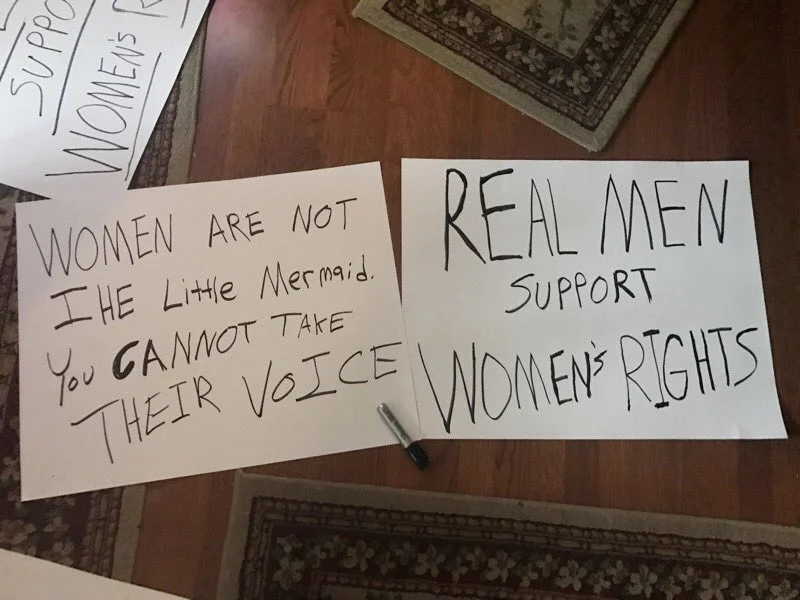 SUPPO
WOMEN'S R
WOMEN ARE NOT
THE Little Mermaid.
You CANNOT TAKE
THEIR VOICE
REAL MEN
SUPPORT
WOMEN'S RIGHTS